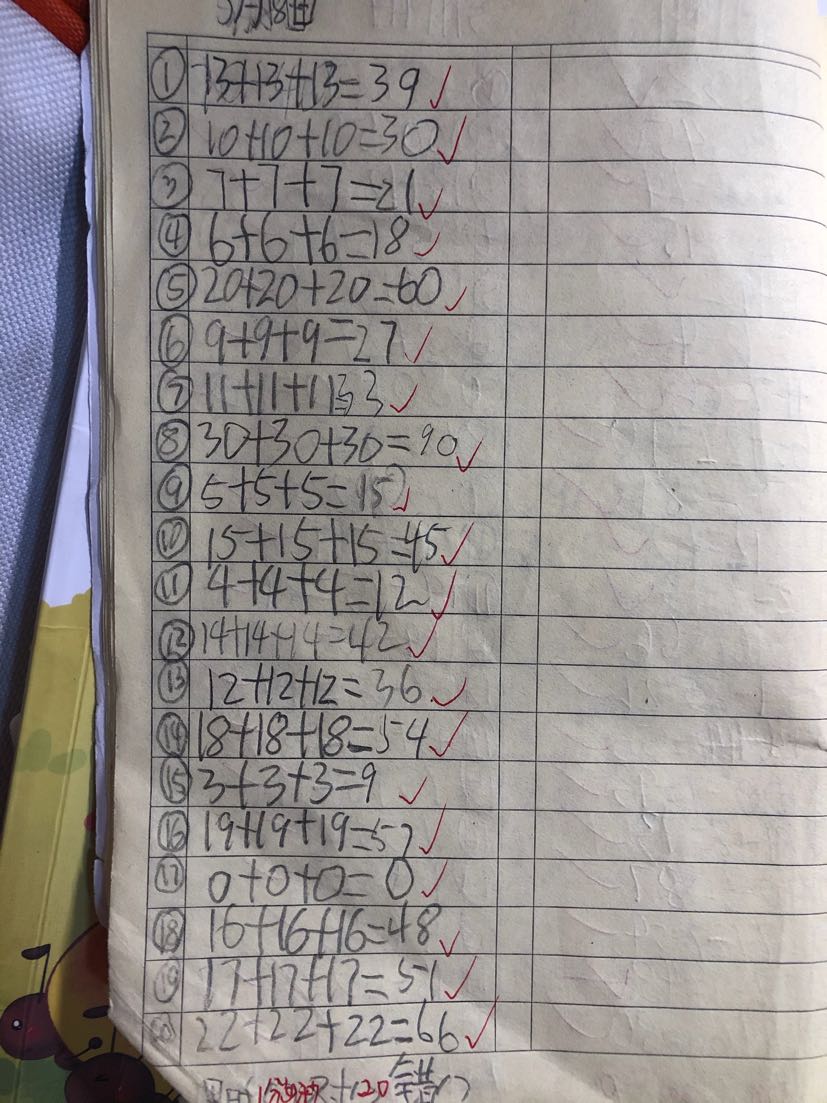 ① 13+13+13=39 ✓
② 10+10+10=30 ✓
③ 7+7+7=21 ✓
④ 6+6+6=18 ✓
⑤ 20+20+20=60 ✓
⑥ 9+9+9=27 ✓
⑦ 11+11+11=33 ✓
⑧ 30+30+30=90 ✓
⑨ 5+5+5=15 ✓
⑩ 15+15+15=45 ✓
⑪ 4+4+4=12 ✓
⑫ 14+14+14=42 ✓
⑬ 12+12+12=36 ✓
⑭ 18+18+18=54 ✓
⑮ 3+3+3=9 ✓
⑯ 19+19+19=57 ✓
⑰ 0+0+0=0 ✓
⑱ 16+16+16=48 ✓
⑲ 17+17+17=51 ✓
⑳ 22+22+22=66 ✓
20 错